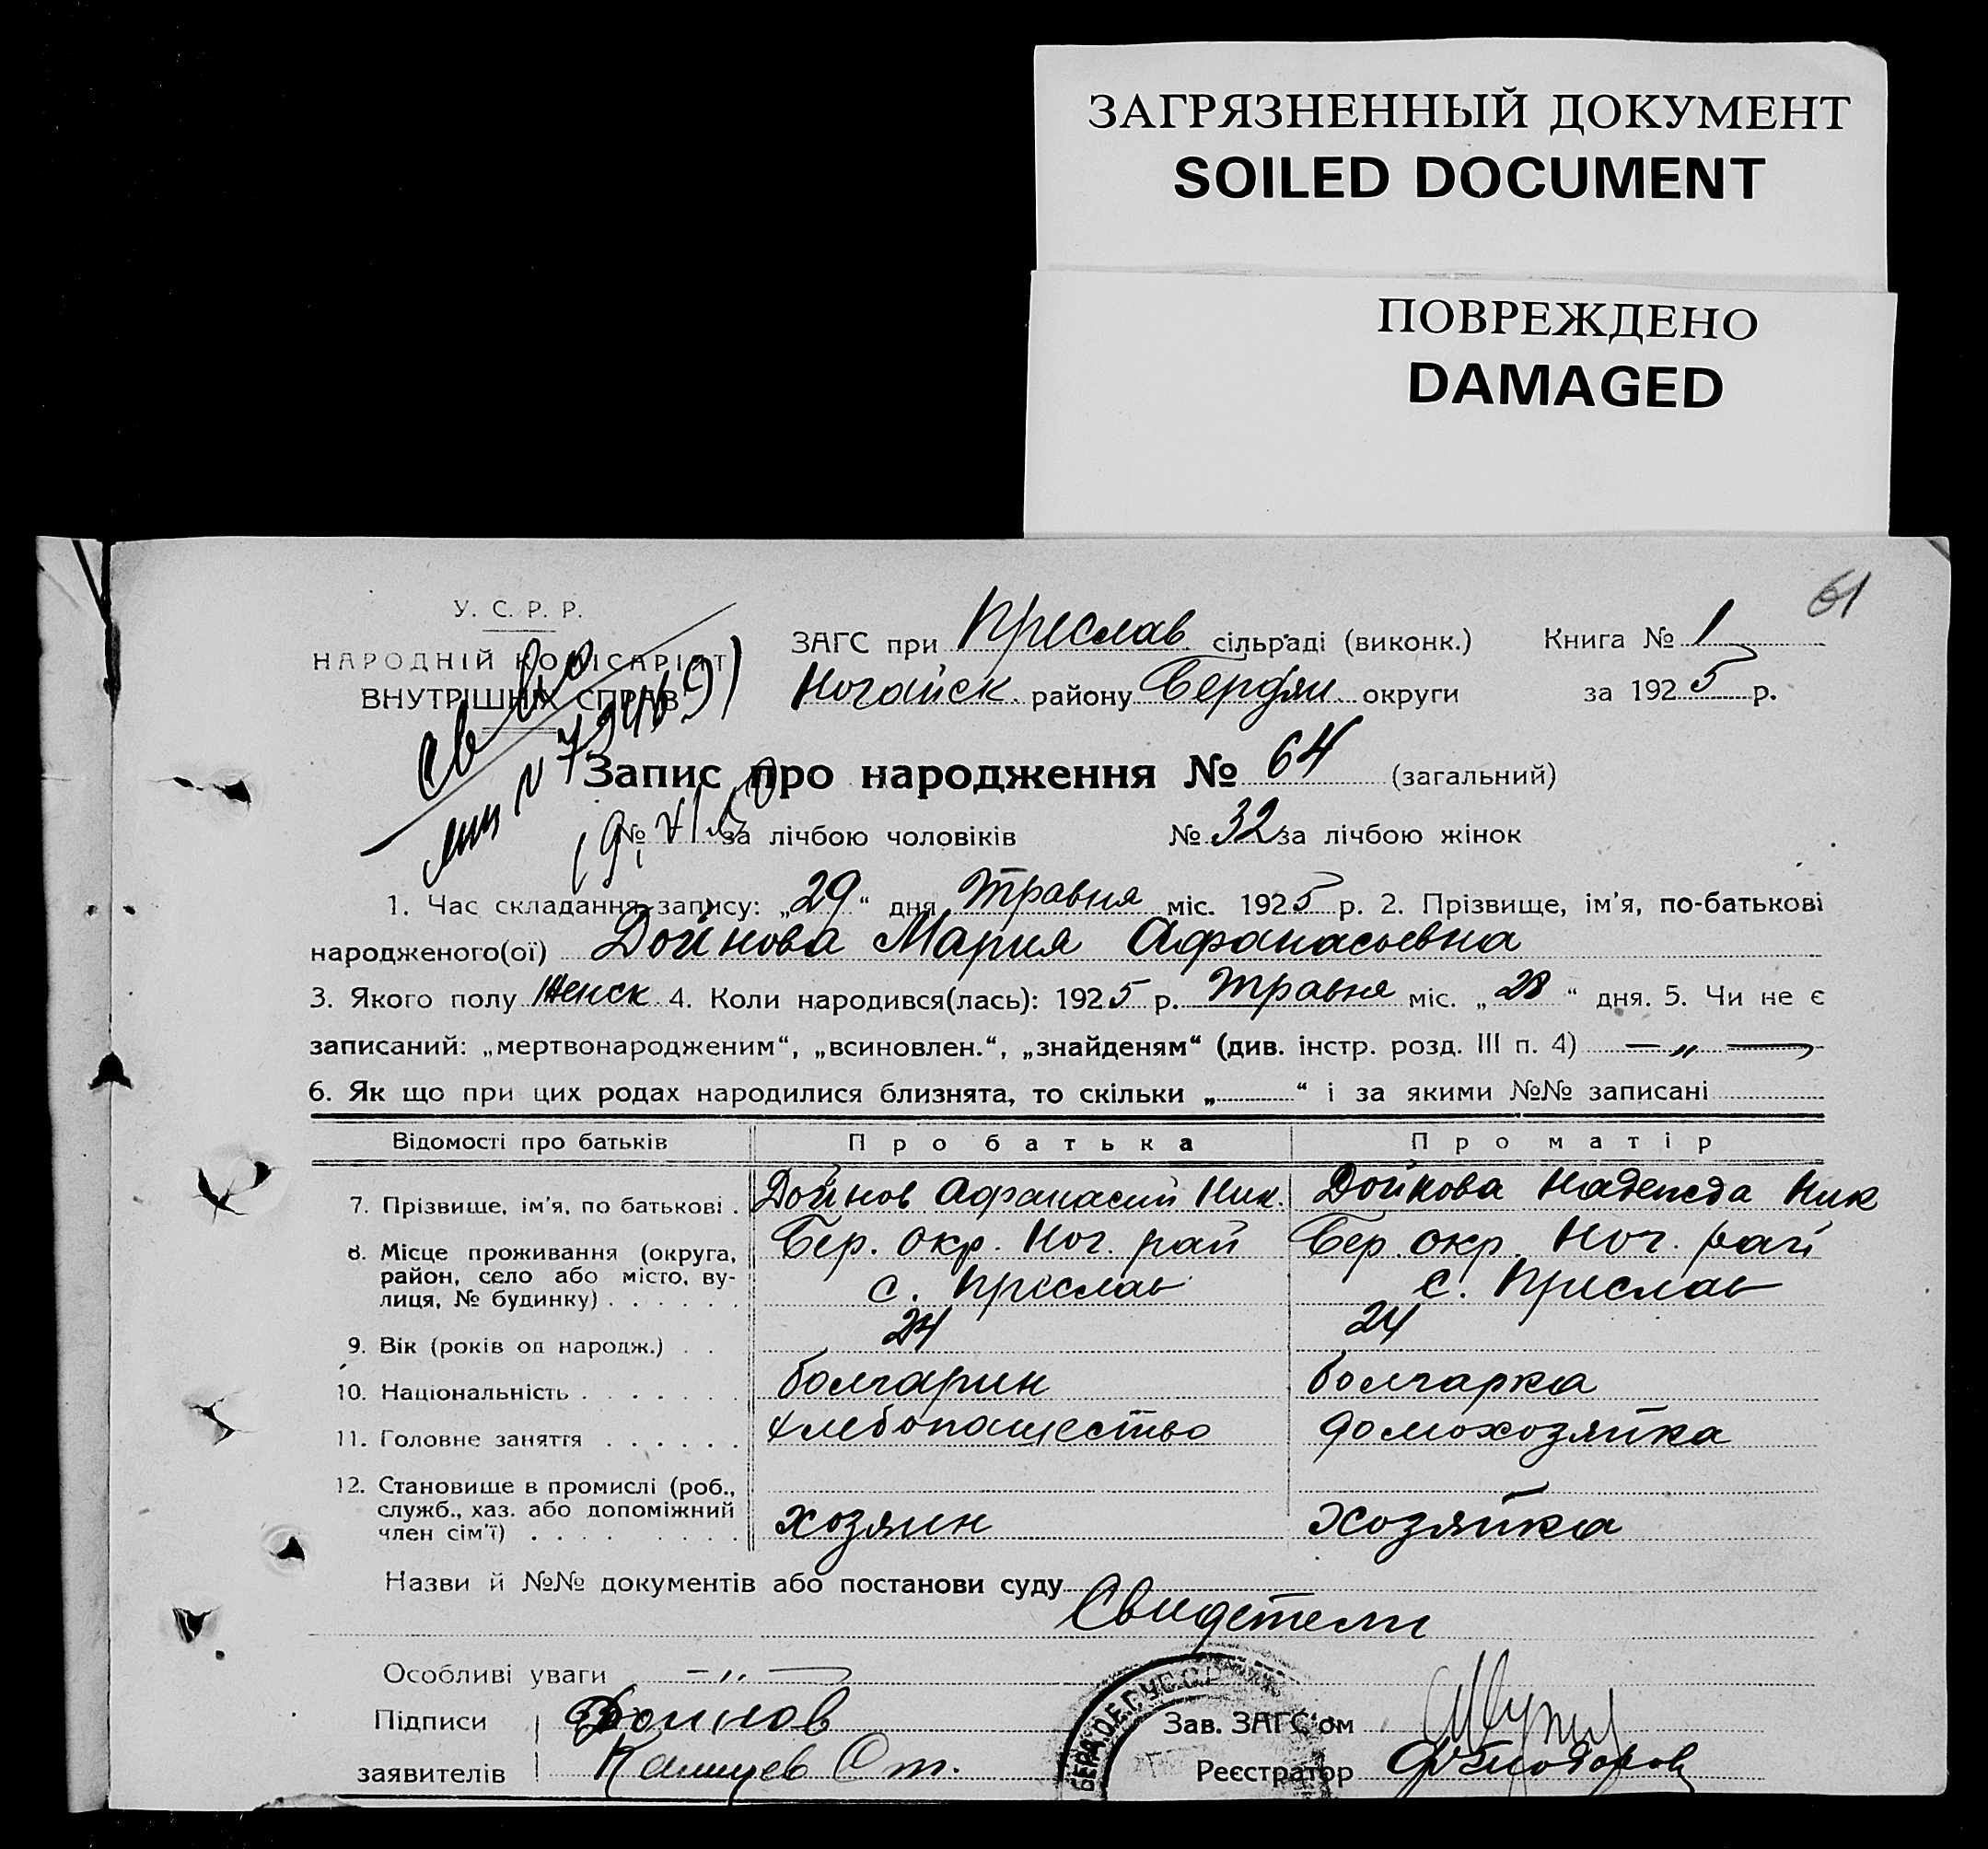 ЗАГРЯЗНЕННЫЙ ДОКУМЕНТ
SOILED DOCUMENT
ПОВРЕЖДЕНО
DAMAGED
61
У. С. Р. Р.
НАРОДНІЙ КОМІСАРІЯТ
ВНУТРІШНІХ СПРАВ
ЗАГС при Преслав сільраді (виконк.) Книга № 1
Ногайск району Бердян округи за 1925 р.
Запис про народження № 64 (загальний)
№ за лічбою чоловіків № 32 за лічбою жінок
1. Час складання запису: „29“ дня Травня міс. 1925 р. 2. Прізвище, ім'я, по-батькові
народженого(ої) Дойнова Мария Афанасьевна
3. Якого полу Женск 4. Коли народився(лась): 1925 р. Травня міс. „28“ дня. 5. Чи не є
записаний: „мертвонародженим“, „всиновлен.“, „знайденям“ (див. інстр. розд. III п. 4) — „ —
6. Як що при цих родах народилися близнята, то скільки „ “ і за якими №№ записані
Відомості про батьків Про батька Про матір
7. Прізвище, ім'я, по батькові . Дойнов Афанасий Ник. Дойнова Надежда Ник
8. Місце проживання (округа, район, село або місто, вулиця, № будинку) . . . . . . Бер. окр. Ног. рай Бер. окр. Ног. рай
с. Преслав с. Преслав
9. Вік (років од народж.) . . 24 24
10. Національність . . . . . . . болгарин болгарка
11. Головне заняття . . . . . . хлебопашество домохозяйка
12. Становище в промислі (роб., служб., хаз. або допоміжний член сім'ї) . . . . . . . . хозяин Хозяйка
Назви й №№ документів або постанови суду
Свидетели
Особливі уваги — „ —
Підписи Дойнов Зав. ЗАГС'ом
заявителів Ст. Реєстратор